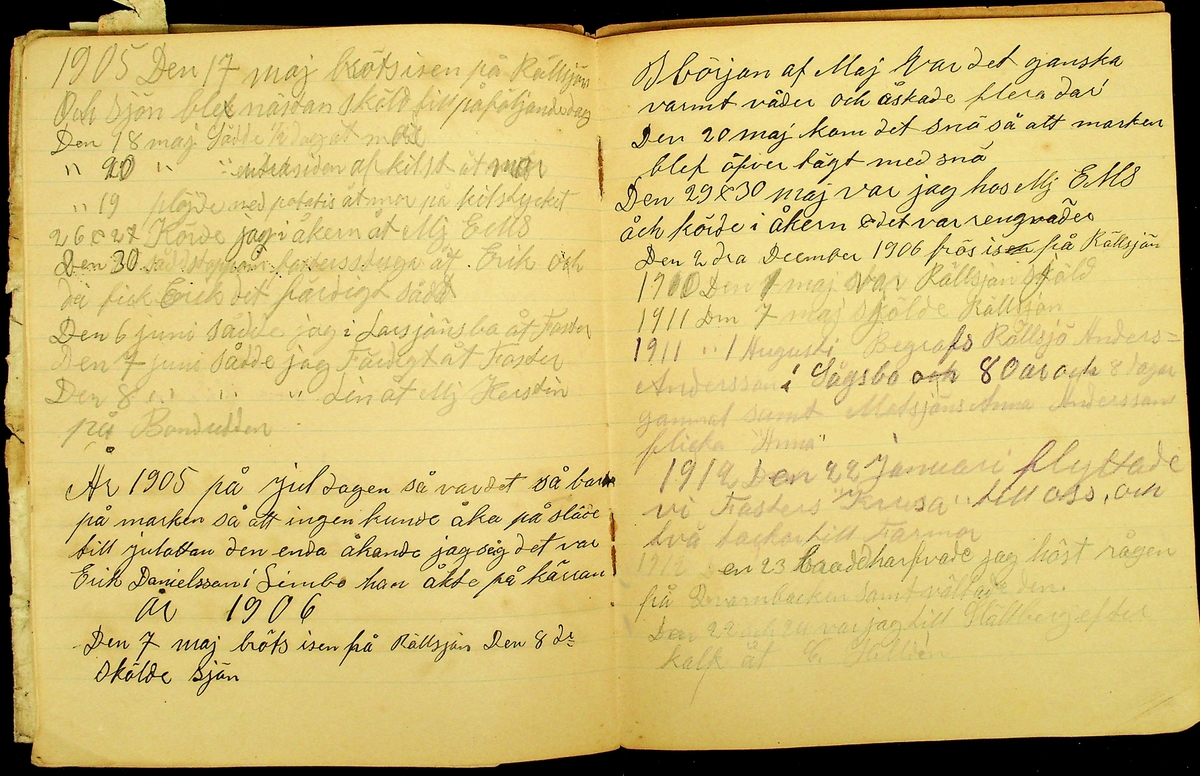 1905 Den 17 maj bröts isen på Rällsjön
Och sjön blef nästan sköld till påföljande dag
Den 18 maj Sådde ½ dag åt mor
" 20 " " andra sidan af kilst åt mor
" 19 plöjde ned potatis åt mor på kilstycket
26 & 27 Körde jag i åkern åt Mj EMS
Den 30 fasters åt Erik och
då fick Erik det färdigt sådt
Den 6 juni sådde jag i Larsjönsbo åt Faster
Den 7 juni Sådde jag Färdigt åt Faster
Den 8 " " " Lin åt Mj Kerstin
på Bondudden
År 1905 på juldagen så var det så bart
på marken så att ingen kunde åka på släde
till julottan den enda åkande jag såg det var
Erik Danielsson i Simbo han åkte på kärran
År 1906
Den 7 maj bröts isen på Rällsjön Den 8 de
skölde sjön
I början af Maj var det ganska
varmt väder och åskade flera dar
Den 20 maj kom det snö så att marken
blef öfver tägt med snö
Den 29 & 30 maj var jag hos Mj EMS
och körde i åkern & det var rengväder
Den 2 dra December 1906 frös isen på Rällsjön
1910 Den 1 maj var Rällsjön sköld
1911 Den 7 maj skölde Rällsjön
1911 " 1 Augusti Begrafs Rällsjö Anders=
Andersson i Sågsbo och 80 år och 8 dagar
gammal samt Matsjöns Anna Andersson
flicka "Anna"
1912 Den 22 Januari flyttade
vi Fasters "Krusa" till oss, och
två tackor till Farmor
1912 en 23 harfvade jag höst rågen
på Qvarnbacken samt vältade den.
Den 22 och 24 var jag till Stållberg efter
kalf åt